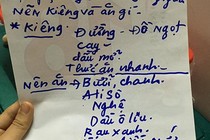 Nên Kiêng và ăn gì-
* Kiêng.
Đường - Đồ Ngọt
cay -
dầu mỡ
Thức ăn nhanh.
Nên ăn → Bưởi, chanh.
Atisô
Nghệ
Dầu ô liu.
Rau xanh